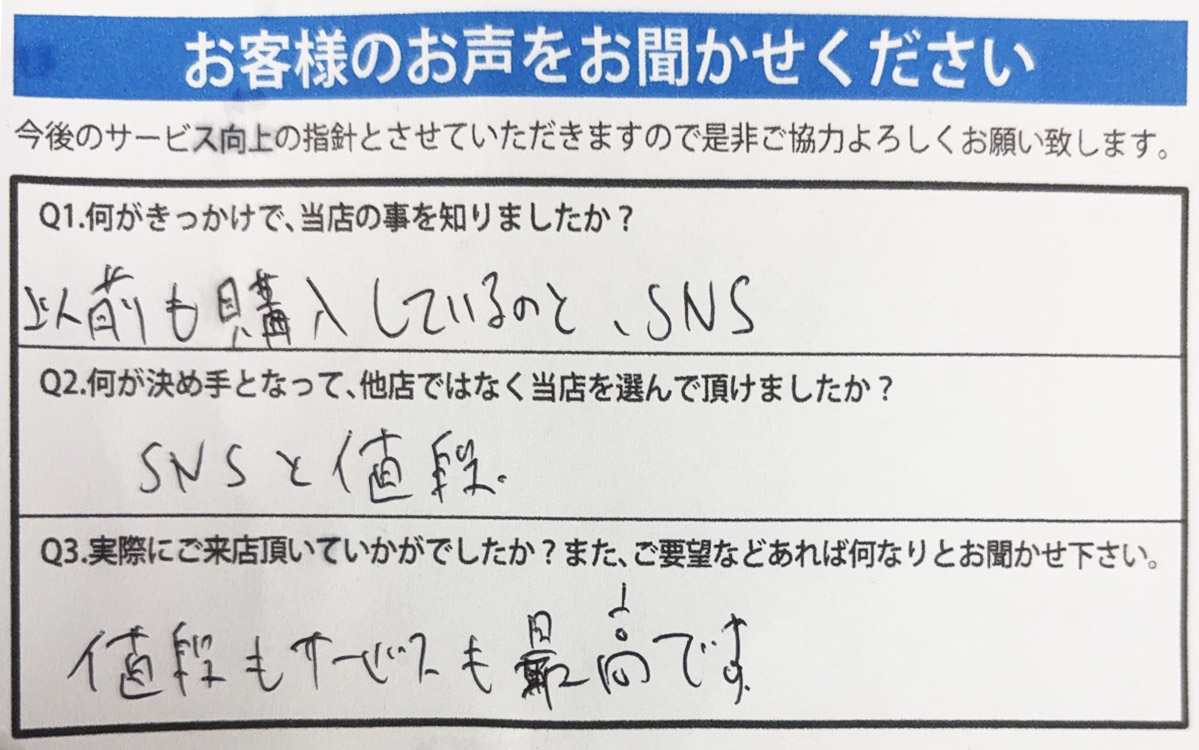 お客様のお声をお聞かせください
今後のサービス向上の指針とさせていただきますので是非ご協力よろしくお願い致します。
Q1.何がきっかけで、当店の事を知りましたか？
以前も購入しているのと、SNS
Q2.何が決め手となって、他店ではなく当店を選んで頂けましたか？
SNSと値段.
Q3.実際にご来店頂いていかがでしたか？また、ご要望などあれば何なりとお聞かせ下さい。
値段もサービスも最高です.